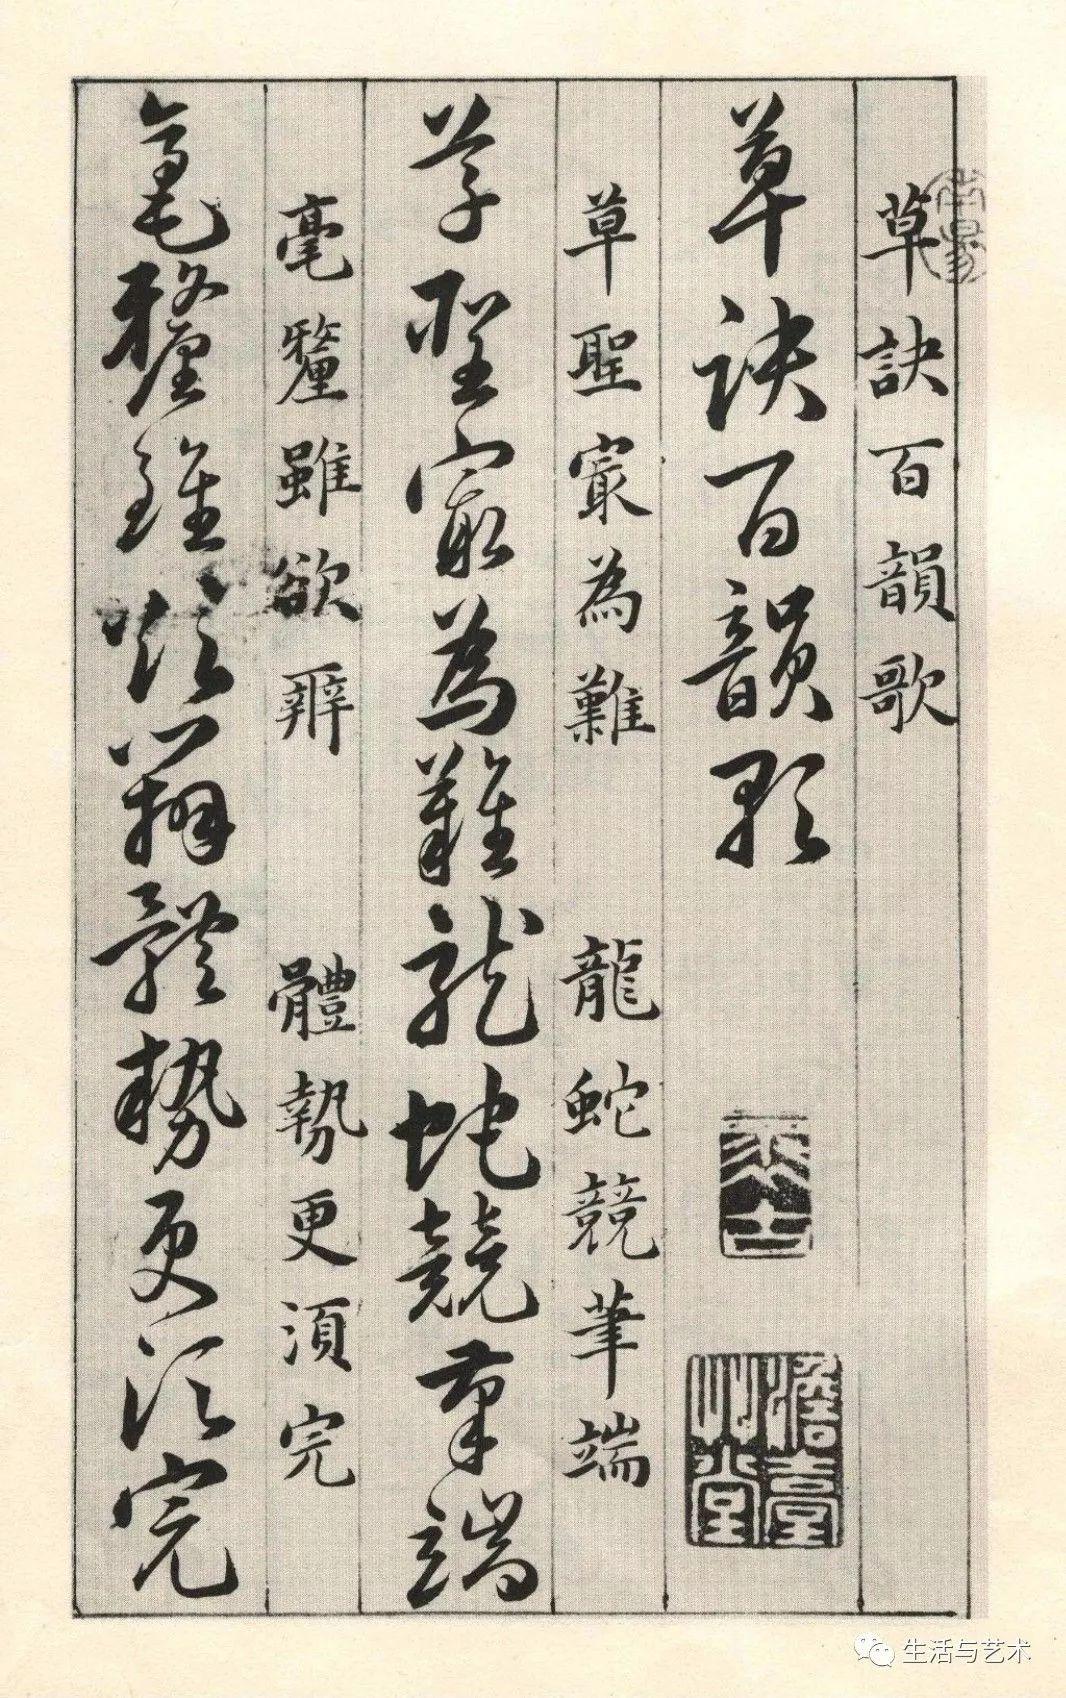 草訣百韻歌
草訣百韻歌
草聖冣為難　龍蛇競筆端
草聖冣為難龍蛇競筆端
毫釐雖欲辨　體勢更須完
毫釐雖欲辨體勢更須完
生活与艺术